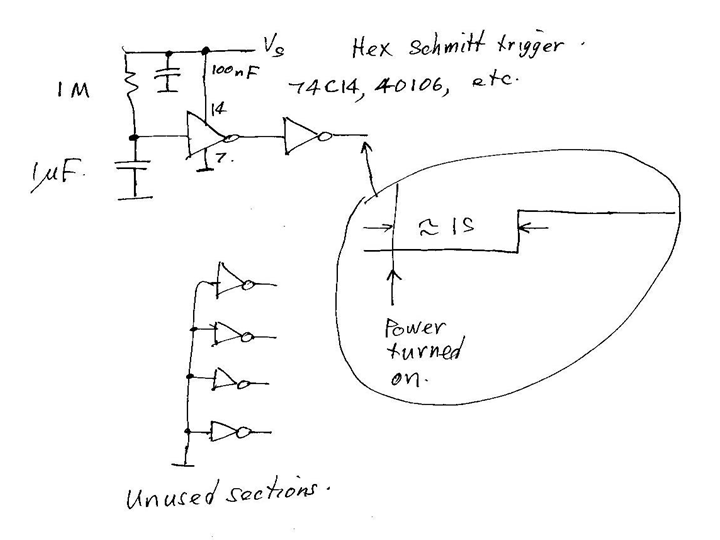 Vs
Hex Schmitt trigger.
100nF
74C14, 40106, etc.
1M
14
7.
1µF.
≈ 1S
Power
turned
on.
Unused sections.